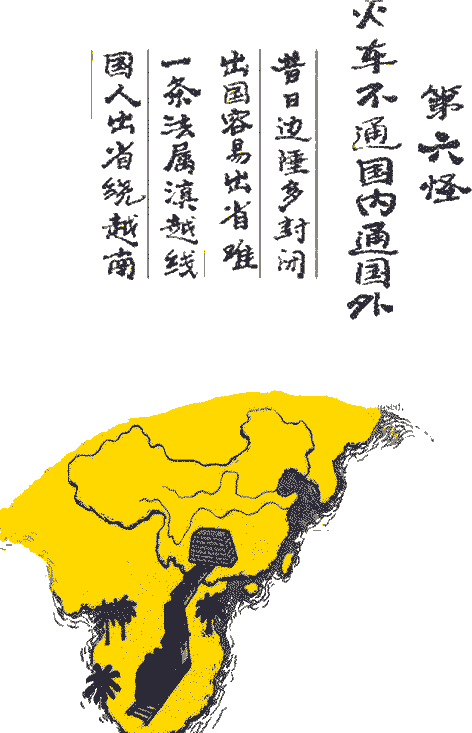 第六怪
火车不通国内通国外
昔日边陲多封闭
出国容易出省难
一条法属滇越线
国人出省绕越南